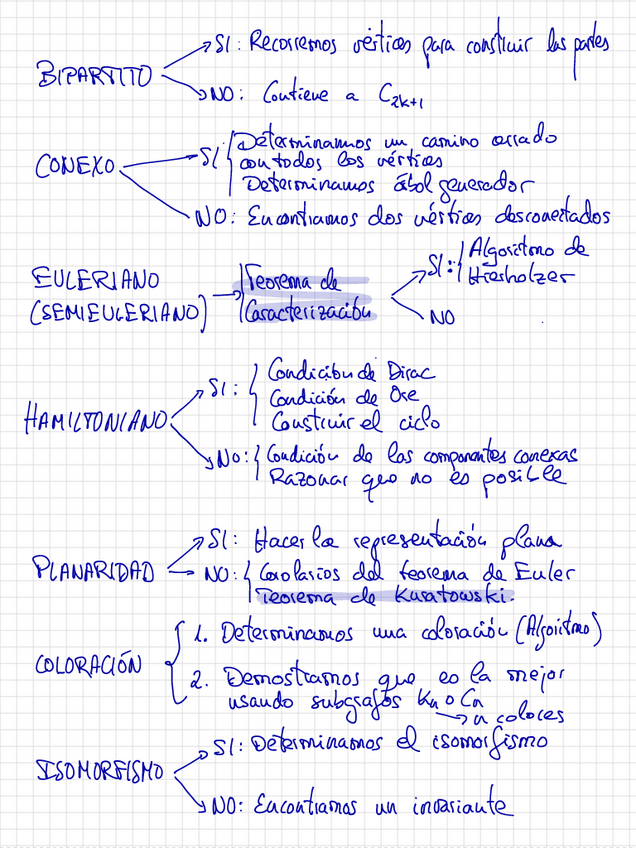 BIPARTITO
SI: Recorremos vértices para construir las partes
NO: Contiene a C2k+1
CONEXO
SI { Determinamos un camino cerrado
con todos los vértices
Determinamos árbol generador
NO: Encontramos dos vértices desconectados
EULERIANO
(SEMIEULERIANO)
Teorema de
Caracterización
SI: Algoritmo de
Hierholzer
NO
HAMILTONIANO
SI: { Condición de Dirac
Condición de Ore
Construir el ciclo
NO: { Condición de las componentes conexas
Razonar que no es posible
PLANARIDAD
SI: Hacer la representación plana
NO: { Corolarios del teorema de Euler
Teorema de Kuratowski.
COLORACIÓN
1. Determinamos una coloración (Algoritmo)
2. Demostramos que es la mejor
usando subgrafos Kn o Cn
→ n colores
ISOMORFISMO
SI: Determinamos el isomorfismo
NO: Encontramos un invariante